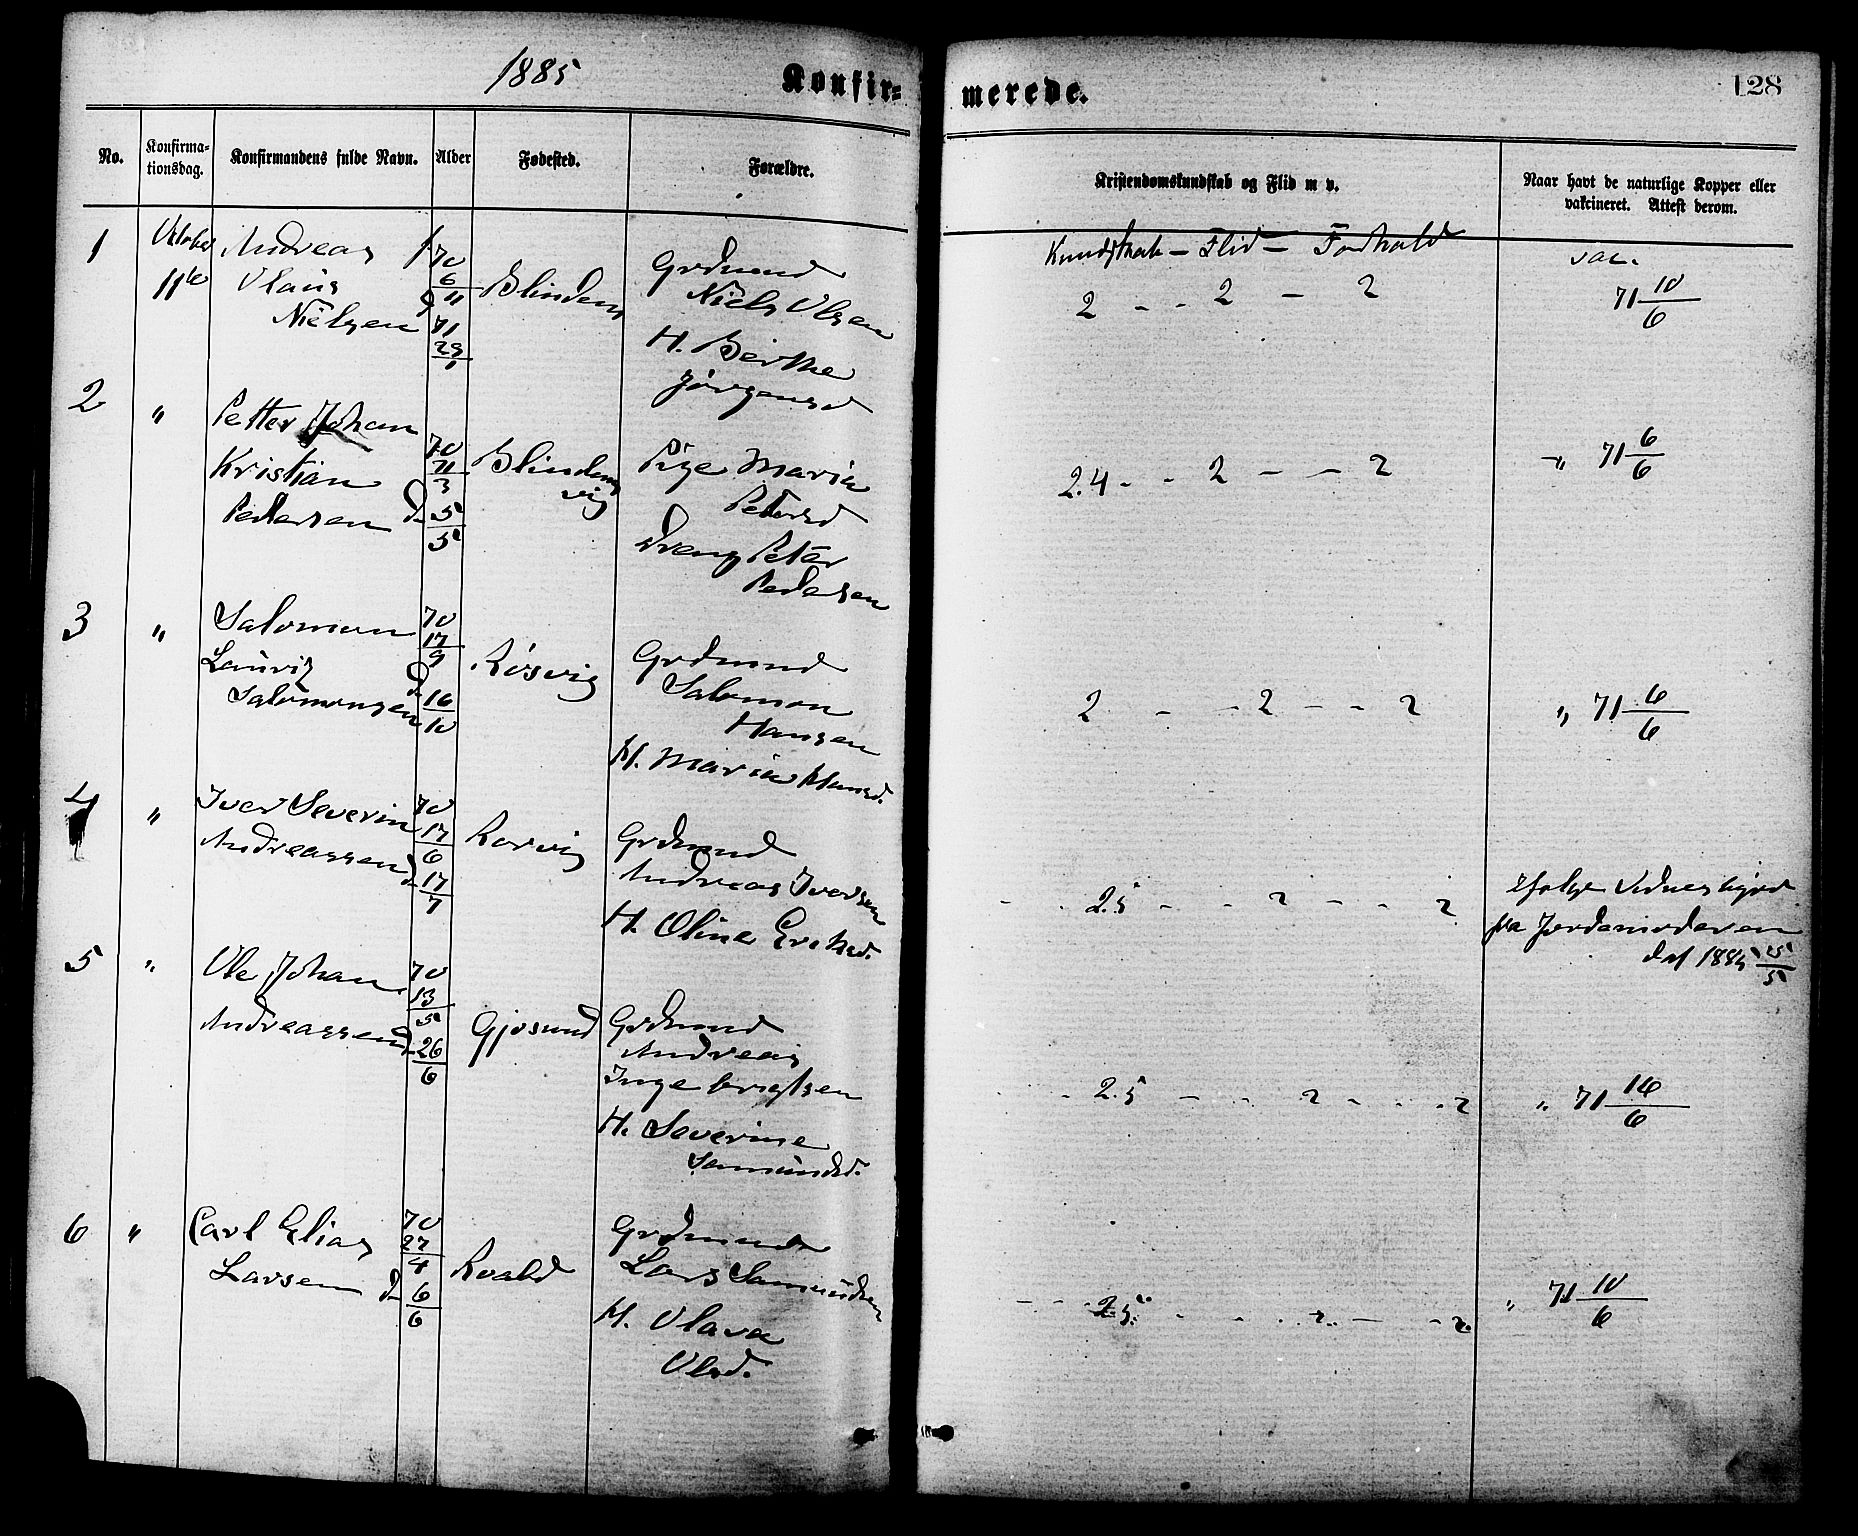 1885
Konfir-
merede.
128
No.
Konfirma-
tionsdag.
Konfirmandens fulde Navn.
Alder
Fødested.
Forældre.
Kristendomskundskab og Flid m v.
Naar havt de naturlige Kopper eller
vakcineret. Attest derom.
Kundskab - Flid - Forhold
vac.
1
October
11te
Andreas
Olaus
Nielsen
f.
70
6
11
d
71
29
1
Blindem
Grdmand
Niels Olsen
H. Berthe
Jørgensd
2 - - 2 - 2
71 10/6
2
"
Petter Johan
Kristian
Pedersen
70
11
3
d
5
5
Blindem
vig
Pige Maria
Petersd
Dreng Peter
Pedersen
2.4 - - 2 - - 2
" 71 6/6
3
"
Salomon
Lauriz
Salomonsen
70
17
9
d
16
10
Røsvig
Grdmand
Salomon
Hansen
H. Maria Hansd.
2 - - 2 - - 2
" 71 6/6
4
"
Iver Severin
Andreassen
70
17
6
d
17
7
Rorvig
Grdmand
Andreas Iversen
H. Oline Eriksd.
- - 2.5 - - 2 - - 2
Ifølge Vidnesbyrd
fra Jordemoderen
dat 1885 25/5
5
"
Ole Johan
Andreassen
70
13
5
d
26
6
Gjøsund
Grdmand
Andreas
Ingebrigtsen
H. Severine
Samundsd.
- 2.5 - - 2 - - - 2
" 71 16/6
6
"
Carl Elias
Larsen
70
27
4
d
6
6
Roald
Grdmand
Lars Samundsen
H. Olava
Olsd.
- - - 2.5. - - - 2 - - 2.
" 71 10/6